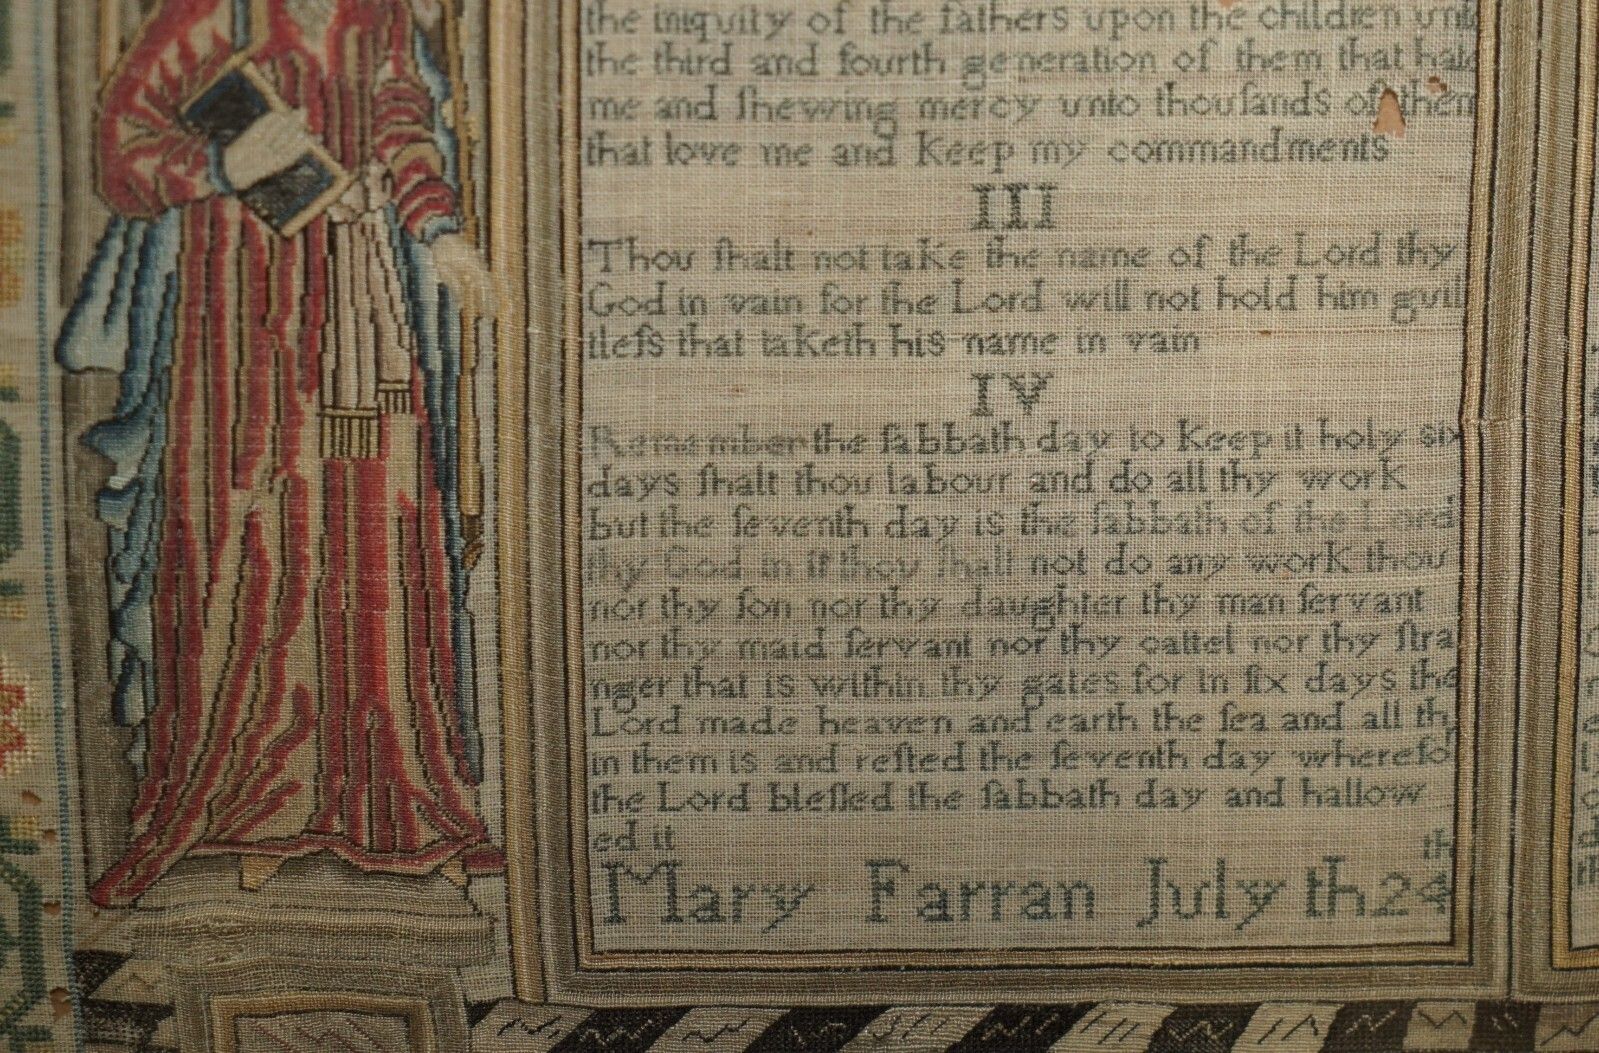 the iniquity of the fathers upon the children unto
the third and fourth generation of them that hate
me and ſhewing mercy unto thouſands of them
that love me and keep my commandments
III
Thou ſhalt not take the name of the Lord thy
God in vain for the Lord will not hold him guil
tleſs that taketh his name in vain
IV
Remember the ſabbath day to keep it holy six
days ſhalt thou labour and do all thy work
but the ſeventh day is the ſabbath of the Lord
thy God in it thou ſhalt not do any work thou
nor thy ſon nor thy daughter thy man ſervant
nor thy maid ſervant nor thy cattel nor thy ſtra
nger that is within thy gates for in ſix days the
Lord made heaven and earth the ſea and all th
in them is and reſted the ſeventh day wherefo
the Lord bleſſed the ſabbath day and hallow
ed it
Mary Farran July th 24th